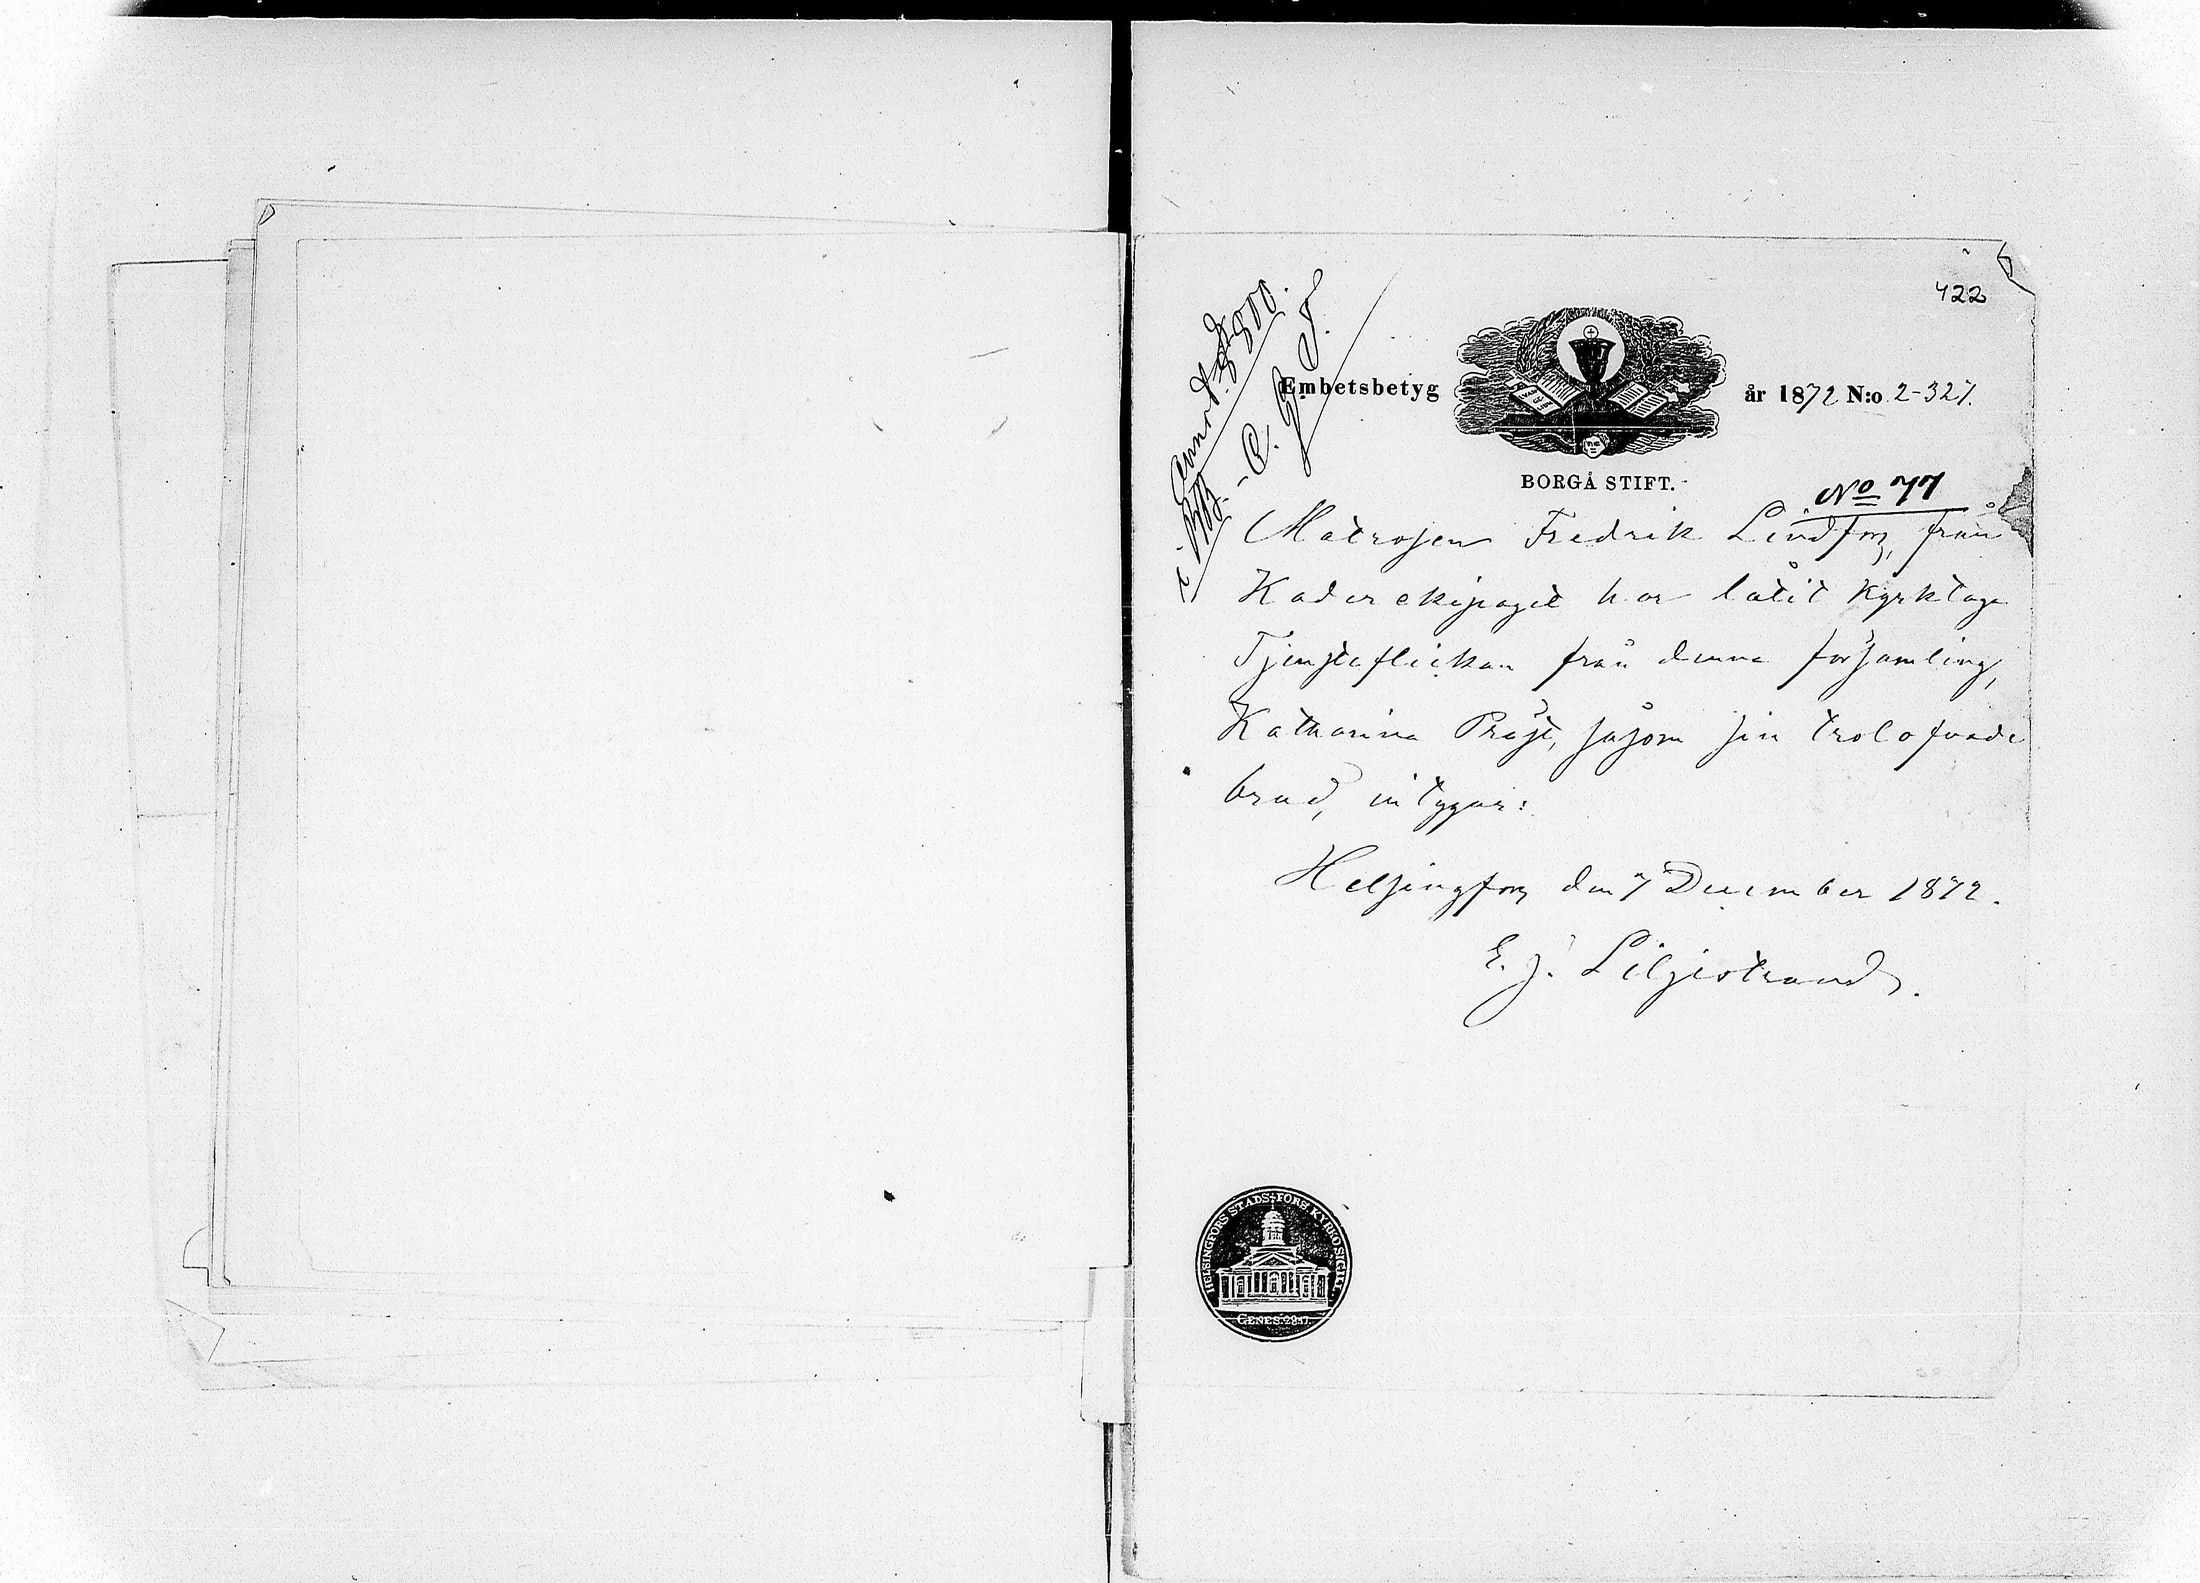 422
Embetsbetyg år 1872 N:o 2-327.
BORGÅ STIFT.
No 77
Matrosen Fredrik Lindfors, från
Kaderekipaget har låtit kyrktaga
Tjensteflickan från denna församling,
Katharina Pråst, såsom sin trolofvade
brud, intygar:
Helsingfors den 7 December 1872.
E. J. Liljestrand.
HELSINGFORS STADS FÖRS. KYRKOSIGILL.
GENES. 28:17.